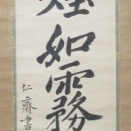 煙如霧
仁齋書